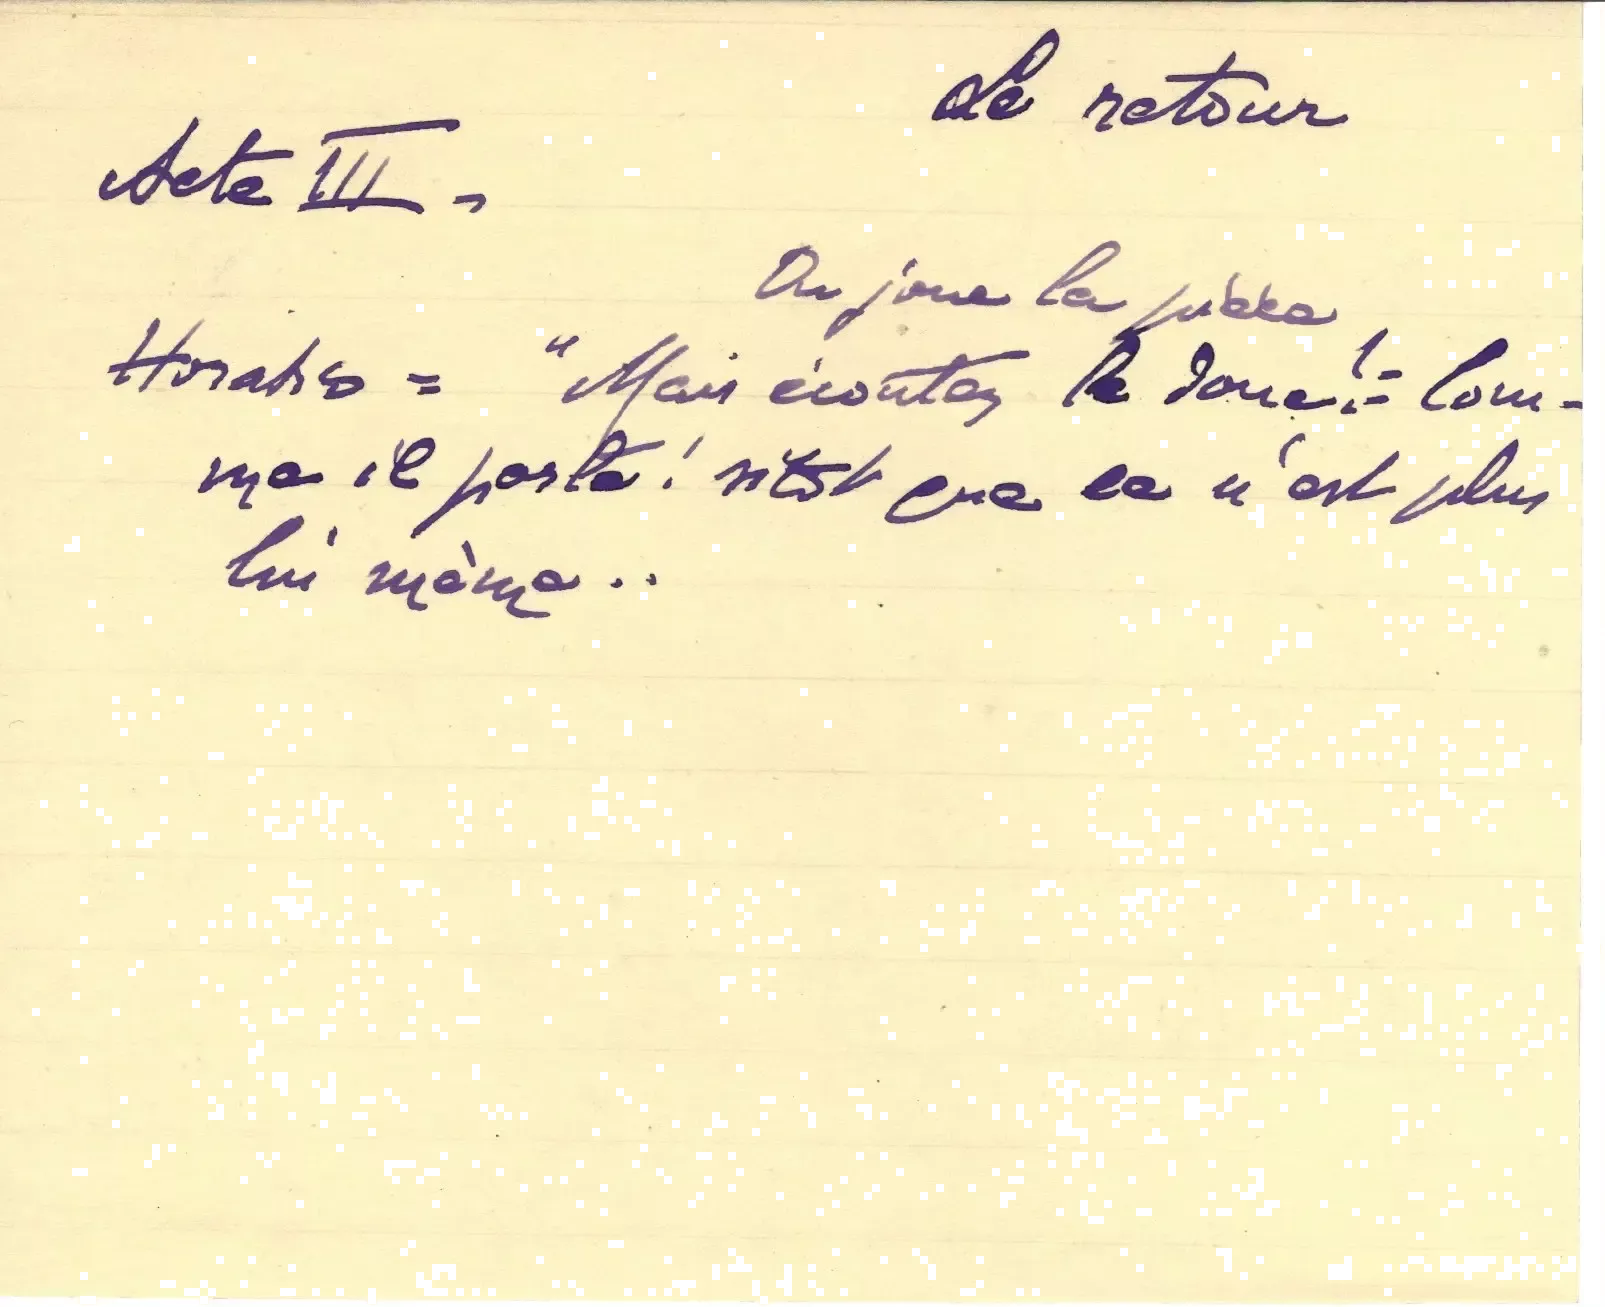 Le retour
Acte III -
On joue la pièce
Horatio = "Mais écoutez le donc! = Com-
me il parle! sitôt que ce n'est plus
lui même..